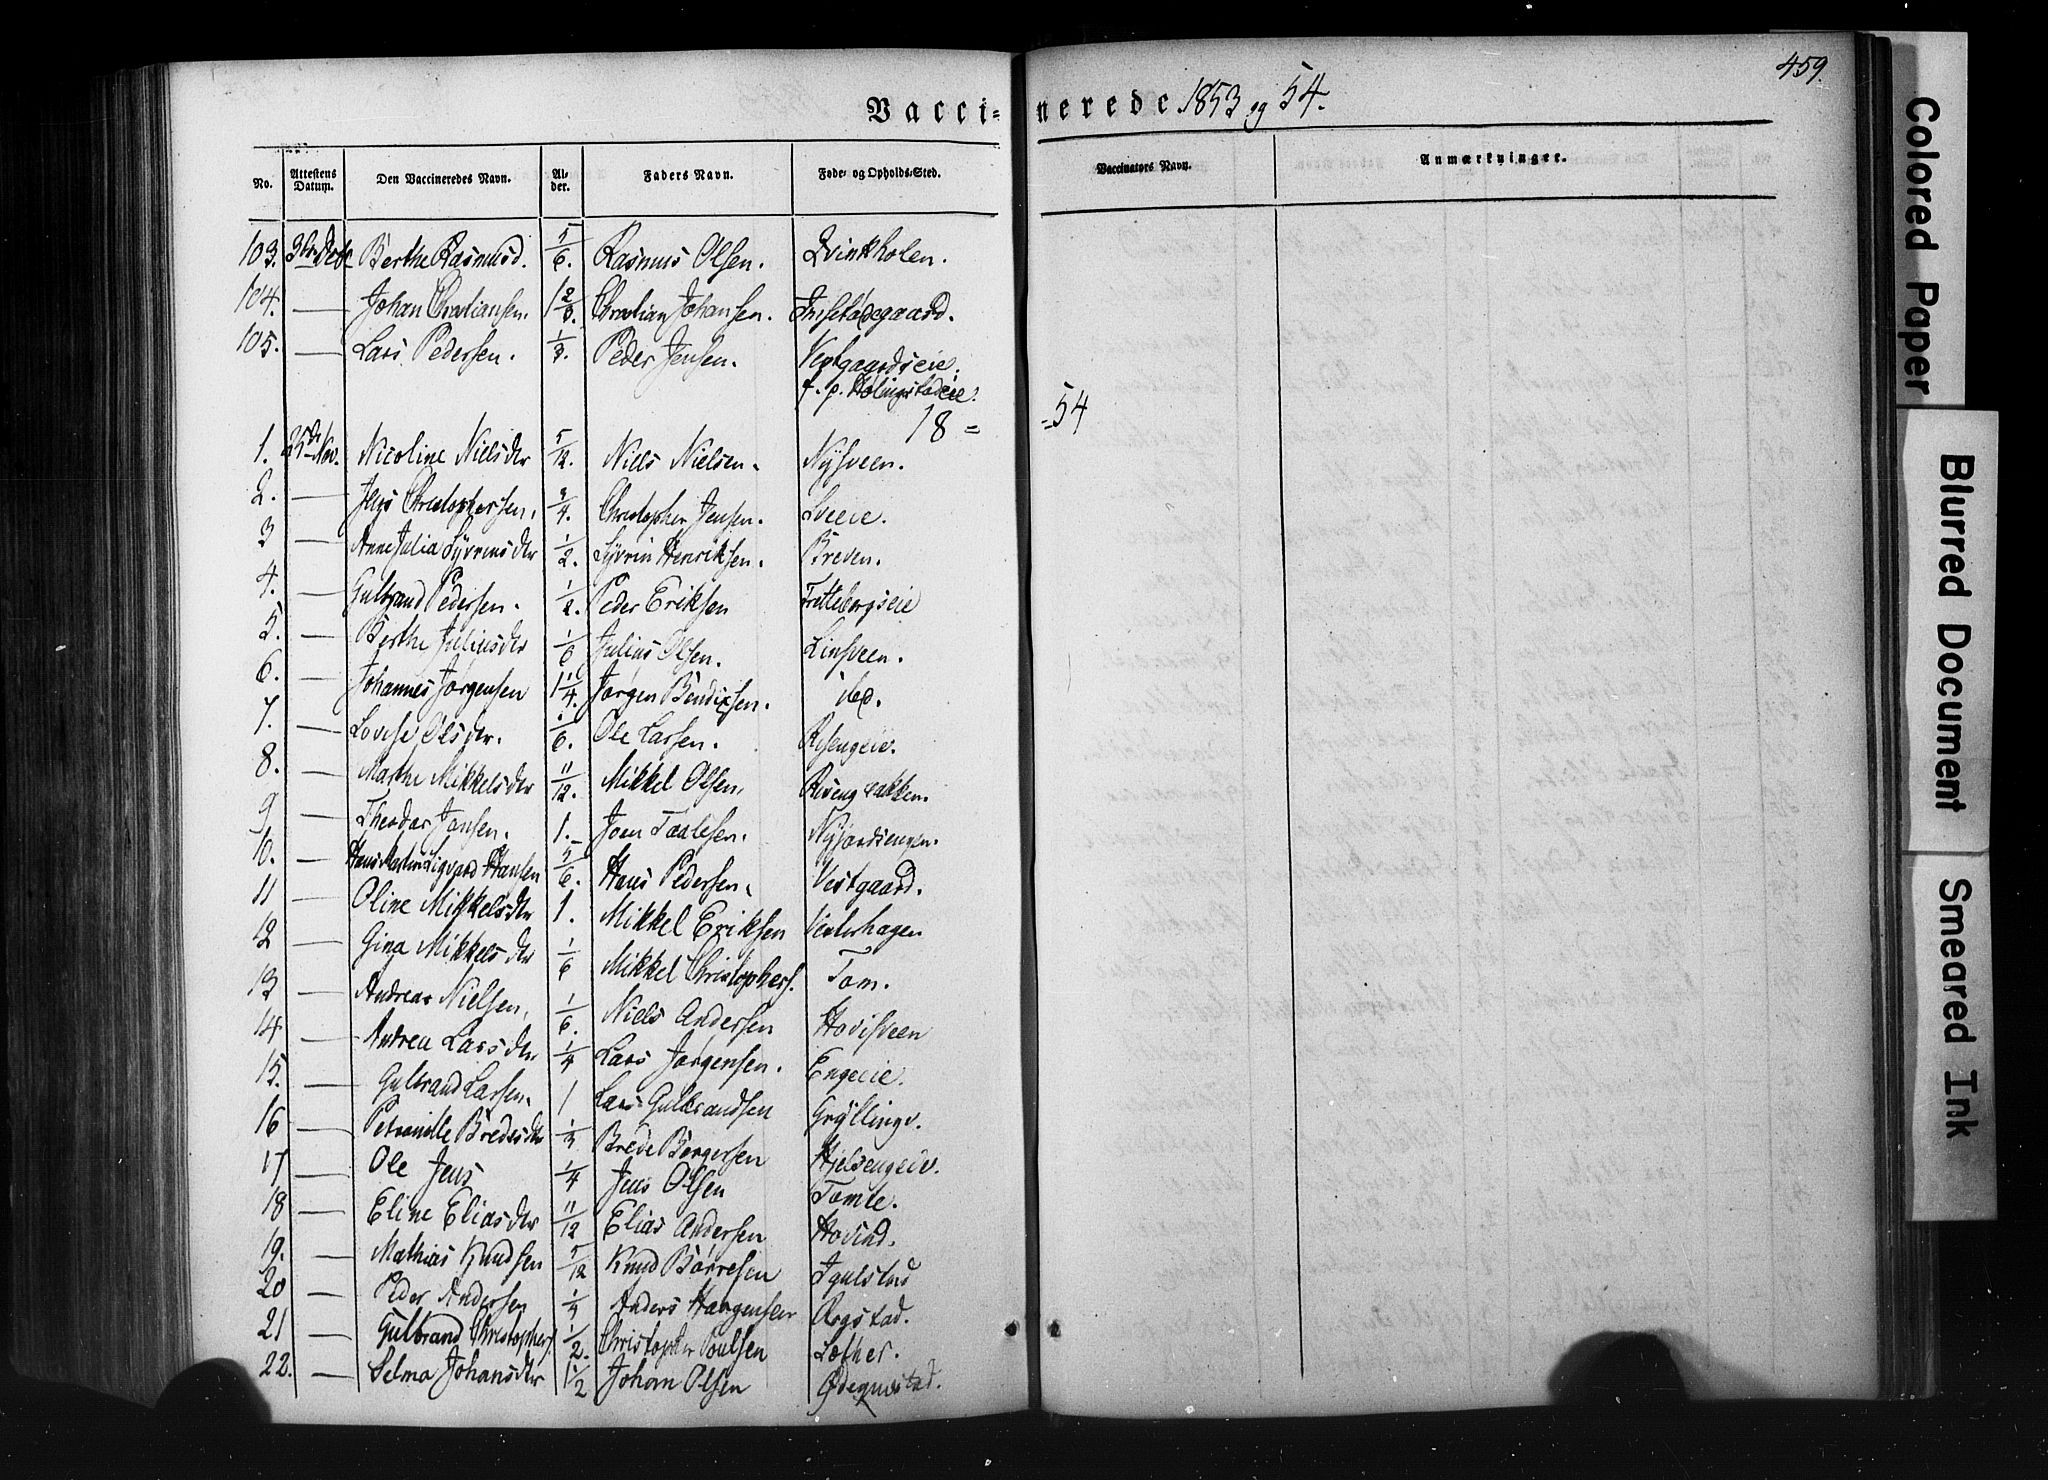 459.
Vacci- nerede 1853 og 54.
No. Attestens Datum. Den Vaccineredes Navn. Alder. Faders Navn. Føde- og Opholds-Sted. Vaccinators Navn. Anmærkninger.
103. Berthe Rasmusd. 5/6. Rasmus Olsen. Qvinkholen.
104. — Johan Christiansen. 1 2/3. Christian Johansen.
105. — Lars Pedersen. 1/3. Peder Jensen. Vestgaardseie.
f. p.
18 = = 54
1. 25de Nov. Nicoline Nielsdtr 5/12. Niels Nielsen. Nysveen.
2. — Jens Christophersen. 3/4. Christopher Jensen. Sveeie.
3 — Anne Julia Syvrinsdtr 1/2. Syvrin Henriksen. Breven.
4. — Gulbrand Pedersen. 1/2. Peder Eriksen Fretteborgseie
5. — Berthe Juliusdtr 1/6 Julius Olsen. Linsveen.
6. — Johannes Jørgensen 1 1/4. Jørgen Bendixsen. ibd.
7. — Lovise Olsdtr. 1/6. Ole Larsen. Risengeie.
8. — Marthe Mikkelsdtr 11/12. Mikkel Olsen. Risengbakken.
9 — Theodor Jonsen. 1. Joen Taalesen. Nyjordsengen.
10. — Hans Martin Sigvard Hansen 5/6. Hans Pedersen. Vestgaard.
11 — Oline Mikkelsdtr 1. Mikkel Eriksen Vesterhagen
12 — Gina Mikkelsdtr 1/6 Mikkel Christophers. Tom.
13 — Andreas Nielsen. 1/6. Niels Andersen Hovisveen
14 — Andrea Larsdtr 1/4 Lars Jørgensen. Engeeie.
15. — Gulbrand Larsen. 1 Lars Gulbrandsen Gryllingv.
16 — Petronille Bredesdtr 1/3 Brede Børgersen Hjelsengeie.
17 — Ole Jens 1/4 Jens Olsen Tomle.
18 — Eline Eliasdtr 11/12 Elias Andersen Hovind.
19. — Mathias Knudsen 5/12 Knud Børresen Igulstad
20 — Peder Andersen 1/4 Anders HaagensenØrgstad.
21 — Gulbrand Christophers. 1/2. Christopher Poulsen Løther.
22. — Selma Johansdtr 1 1/2 Johan Olsen
Colored Paper
Blurred Document
Smeared Ink